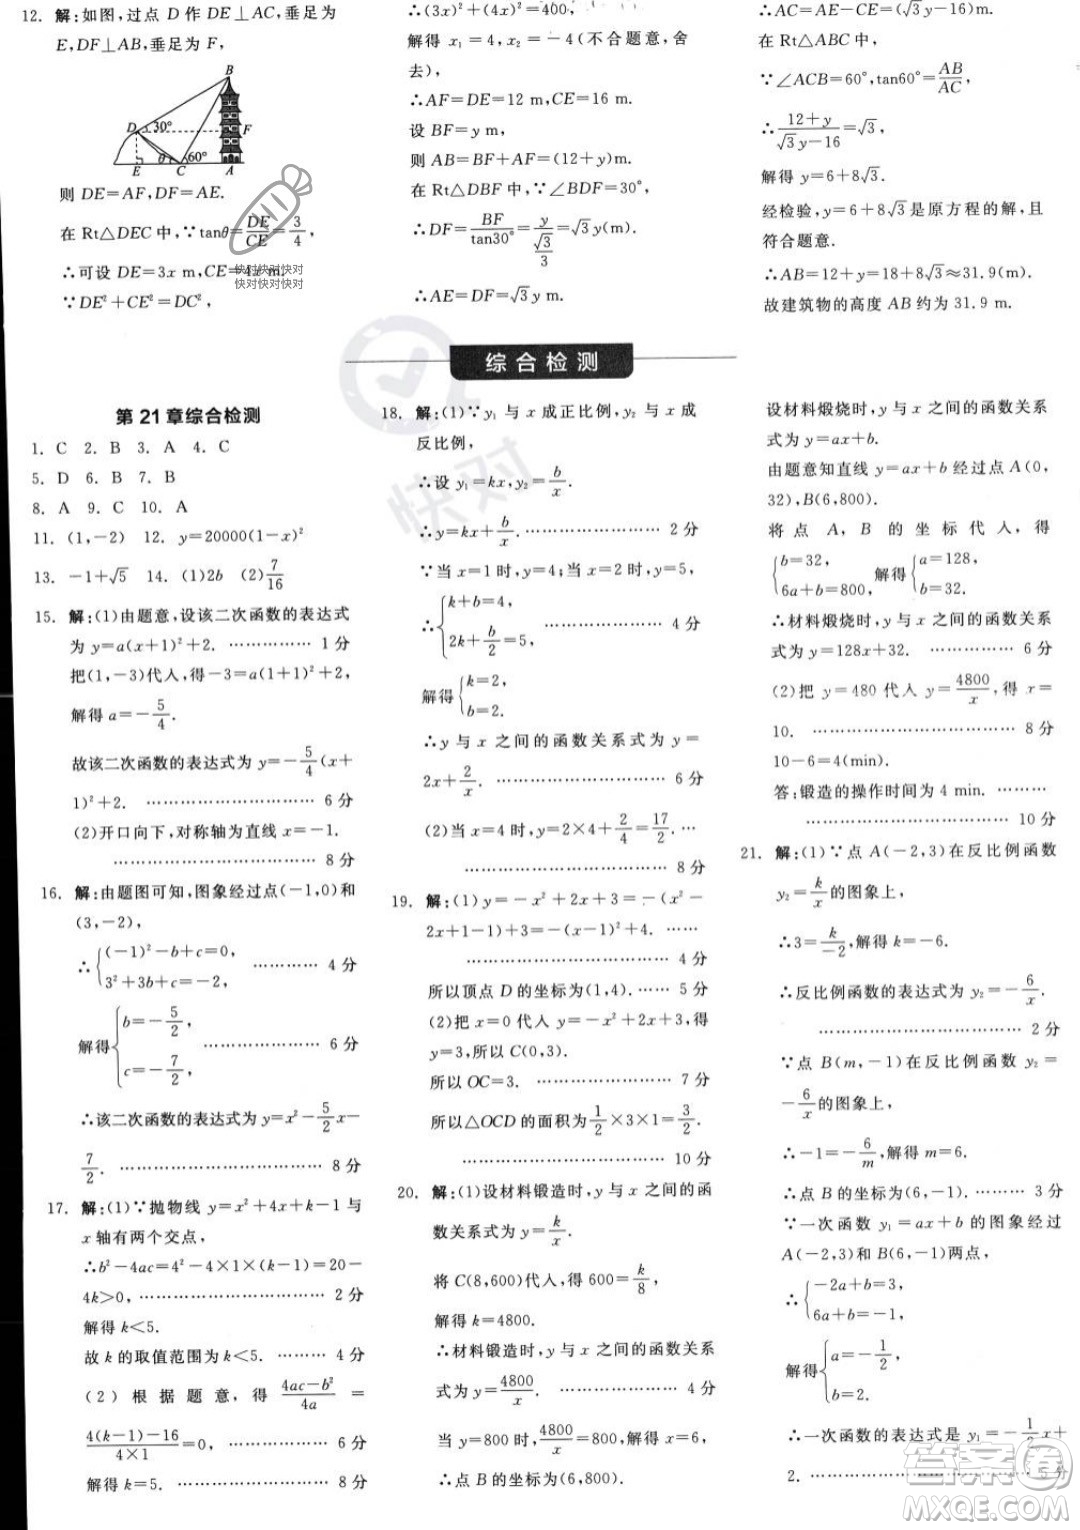 12. 解:如图,过点 D 作 DE⊥AC,垂足为
E,DF⊥AB,垂足为 F,
B
D 30° F
θ 60°
E C A
则 DE=AF,DF=AE.
在 Rt△DEC 中,∵tanθ=DE/CE=3/4,
∴可设 DE=3x m,CE=4x m.
∵DE²+CE²=DC²,
快对快对快对
快对快对快对
∴(3x)²+(4x)²=400,
解得 x₁=4,x₂=-4(不合题意,舍
去),
∴AF=DE=12 m,CE=16 m.
设 BF=y m,
则 AB=BF+AF=(12+y)m.
在 Rt△DBF 中,∵∠BDF=30°,
∴DF=BF/tan30°=y/(√3/3)=√3y(m).
∴AE=DF=√3y m.
∴AC=AE-CE=(√3y-16)m.
在 Rt△ABC 中,
∵∠ACB=60°,tan60°=AB/AC,
∴(12+y)/(√3y-16)=√3,
解得 y=6+8√3.
经检验,y=6+8√3是原方程的解,且
符合题意.
∴AB=12+y=18+8√3≈31.9(m).
故建筑物的高度 AB 约为 31.9 m.
综合检测
快对
第 21 章综合检测
1. C 2. B 3. A 4. C
5. D 6. B 7. B
8. A 9. C 10. A
11. (1,-2) 12. y=20000(1-x)²
13. -1+√5 14. (1)2b (2)7/16
15. 解:(1)由题意,设该二次函数的表达式
为 y=a(x+1)²+2. …………… 1 分
把(1,-3)代入,得-3=a(1+1)²+2,
解得 a=-5/4.
故该二次函数的表达式为 y=-5/4(x+
1)²+2. ………………………… 6 分
(2)开口向下,对称轴为直线 x=-1.
……………………………… 8 分
16. 解:由题图可知,图象经过点(-1,0)和
(3,-2),
∴{(-1)²-b+c=0,
3²+3b+c=-2, ………… 4 分
解得{b=-5/2,
c=-7/2, ………………… 6 分
∴该二次函数的表达式为 y=x²-5/2x-
7/2. ……………………………… 8 分
17. 解:(1)∵抛物线 y=x²+4x+k-1 与
x 轴有两个交点,
∴b²-4ac=4²-4×1×(k-1)=20-
4k>0, …………………………… 2 分
解得 k<5.
故 k 的取值范围为 k<5. ……… 4 分
(2)根据题意,得 (4ac-b²)/4a =
(4(k-1)-16)/(4×1)=0, ……………… 6 分
解得 k=5. …………………… 8 分
18. 解:(1)∵y₁ 与 x 成正比例,y₂ 与 x 成
反比例,
∴设 y₁=kx,y₂=b/x.
∴y=kx+b/x. …………………… 2 分
∵当 x=1 时,y=4;当 x=2 时,y=5,
∴{k+b=4,
2k+b/2=5, ………………… 4 分
解得{k=2,
b=2.
∴y 与 x 之间的函数关系式为 y=
2x+2/x. ………………………… 6 分
(2)当 x=4 时,y=2×4+2/4=17/2. …
………………………………… 8 分
19. 解:(1)y=-x²+2x+3=-(x²-
2x+1-1)+3=-(x-1)²+4. ……
………………………………… 4 分
所以顶点 D 的坐标为(1,4). …… 5 分
(2)把 x=0 代入 y=-x²+2x+3,得
y=3,所以 C(0,3).
所以 OC=3. ………………… 7 分
所以△OCD 的面积为1/2×3×1=3/2.
……………………………… 10 分
20. 解:(1)设材料锻造时,y 与 x 之间的函
数关系式为 y=k/x.
将 C(8,600)代入,得 600=k/8,
解得 k=4800.
∴材料锻造时,y 与 x 之间的函数关系
式为 y=4800/x. ………………… 4 分
当 y=800 时,4800/x=800,解得 x=6.
∴点 B 的坐标为(6,800).
设材料煅烧时,y 与 x 之间的函数关系
式为 y=ax+b.
由题意知直线 y=ax+b 经过点 A(0,
32),B(6,800).
将点 A,B 的坐标代入,得
{b=32,
6a+b=800, 解得{a=128,
b=32.
∴材料煅烧时,y 与 x 之间的函数关系
式为 y=128x+32. …………… 6 分
(2)把 y=480 代入 y=4800/x,得 x=
10. ……………………………… 8 分
10-6=4(min).
答:锻造的操作时间为 4 min. ………
……………………………… 10 分
21. 解:(1)∵点 A(-2,3)在反比例函数
y₂=k/x的图象上,
∴3=k/-2,解得 k=-6.
∴反比例函数的表达式为 y₂=-6/x.
……………………………… 2 分
∵点 B(m,-1)在反比例函数 y₂=
-6/x的图象上,
∴-1=-6/m,解得 m=6.
∴点 B 的坐标为(6,-1). …… 3 分
∵一次函数 y₁=ax+b 的图象经过
A(-2,3)和 B(6,-1)两点,
∴{-2a+b=3,
6a+b=-1,
解得{a=-1/2,
b=2.
∴一次函数的表达式是 y₁=-1/2x+
2. ……………………………… 5 分
答案圈
MXQE.COM